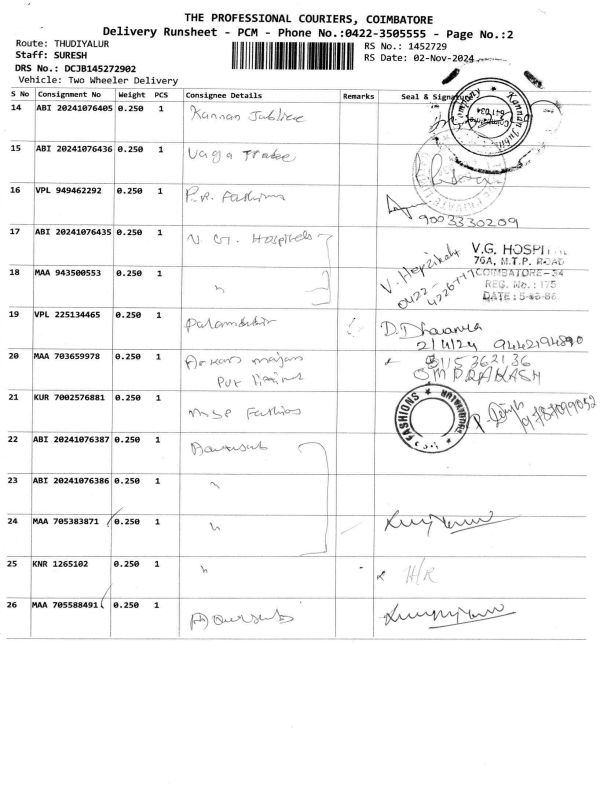 THE PROFESSIONAL COURIERS, COIMBATORE
Delivery Runsheet - PCM - Phone No.:0422-3505555 - Page No.:2
Route: THUDIYALUR
RS No.: 1452729
Staff: SURESH
RS Date: 02-Nov-2024
DRS No.: DCJB145272902
Vehicle: Two Wheeler Delivery
S No Consignment No Weight PCS Consignee Details Remarks Seal & Signature
14 ABI 20241076405 0.250 1 Kannan Jubilee
15 ABI 20241076436 0.250 1
16 VPL 949462292 0.250 1 P.R. Fashions
9003330209
17 ABI 20241076435 0.250 1 V. G. Hospitals
V.G. HOSPITAL
76A, M.T.P. ROAD
COIMBATORE-34
REG. No.: 175
18 MAA 943500553 0.250 1 "
0422-
19 VPL 225134465 0.250 1
D. Dharani
2/11/24 9442194890
20 MAA 703659978 0.250 1
OM PRAKASH
21 KUR 7002576881 0.250 1 MSP Fashions
FASHIONS
22 ABI 20241076387 0.250 1
23 ABI 20241076386 0.250 1 "
24 MAA 705383871 0.250 1 "
25 KNR 1265102 0.250 1 "
H/R
26 MAA 705588491 0.250 1